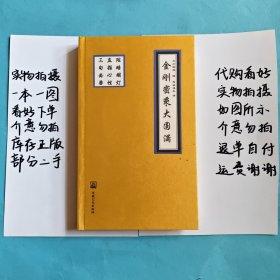 实物拍摄
一本一图
看好下单
介意勿拍
库存正版
部分二手
金刚密乘大圆满
直指心性
代购看好
实物拍摄
如图所示
介意勿拍
退单自付
运费谢谢